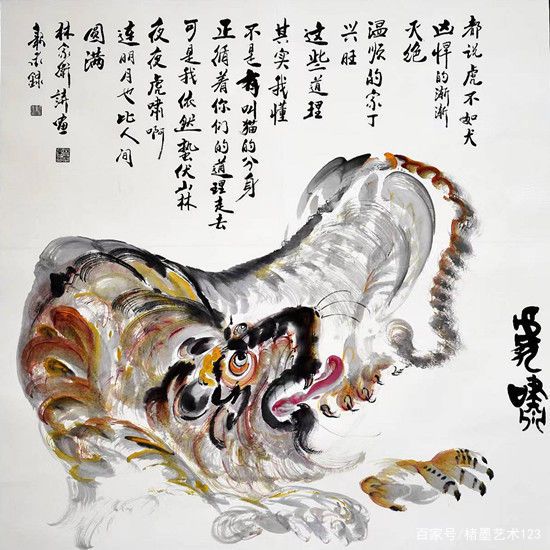 都说虎不如犬
凶悍的渐渐
灭绝
温顺的家丁
兴旺
这些道理
其实我懂
不是有叫猫的分身
正循着你们的道理走去
可是我依然蛰伏山林
夜夜虎啸啊
连明月也比人间
圆满
林家新诗画
虎啸
百家号/楮墨艺术123